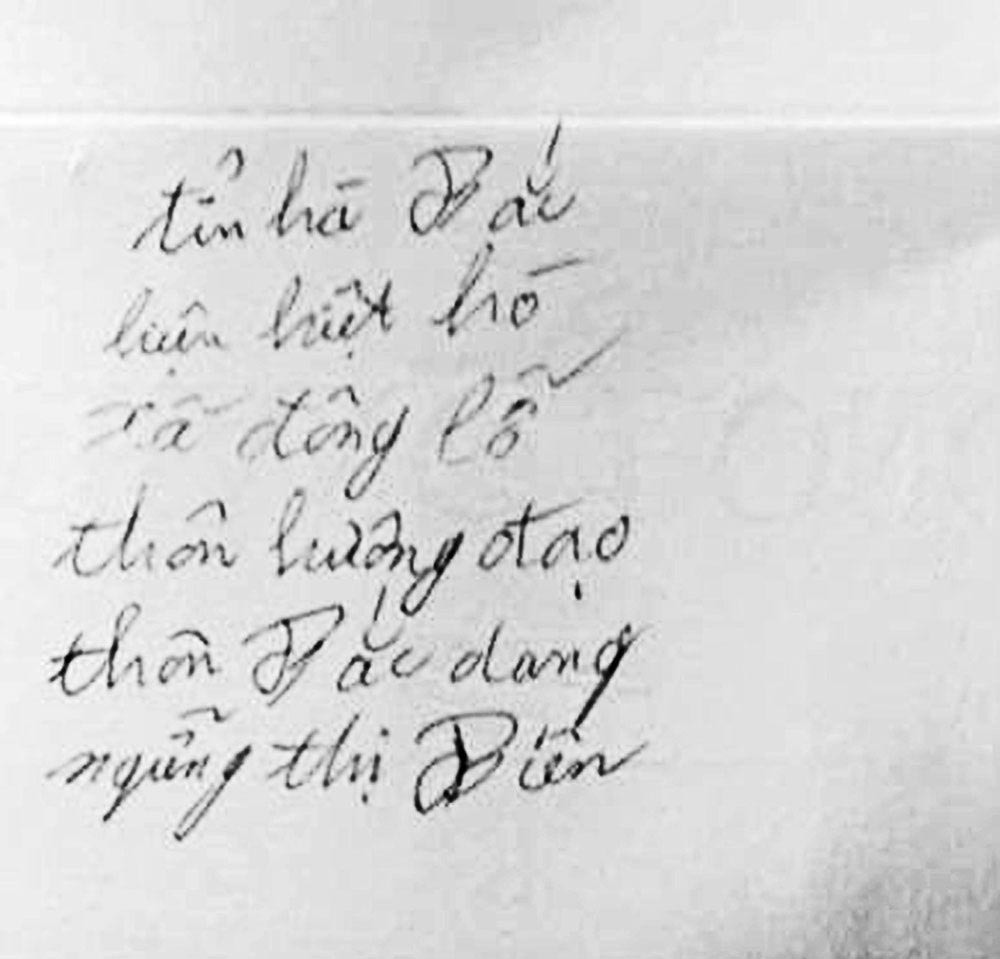 tỉn hà Bắc
hiện hiệt hò
xã đông lỗ
thôn hưởng đạo
thôn Bắc dang
ngững thị Biên